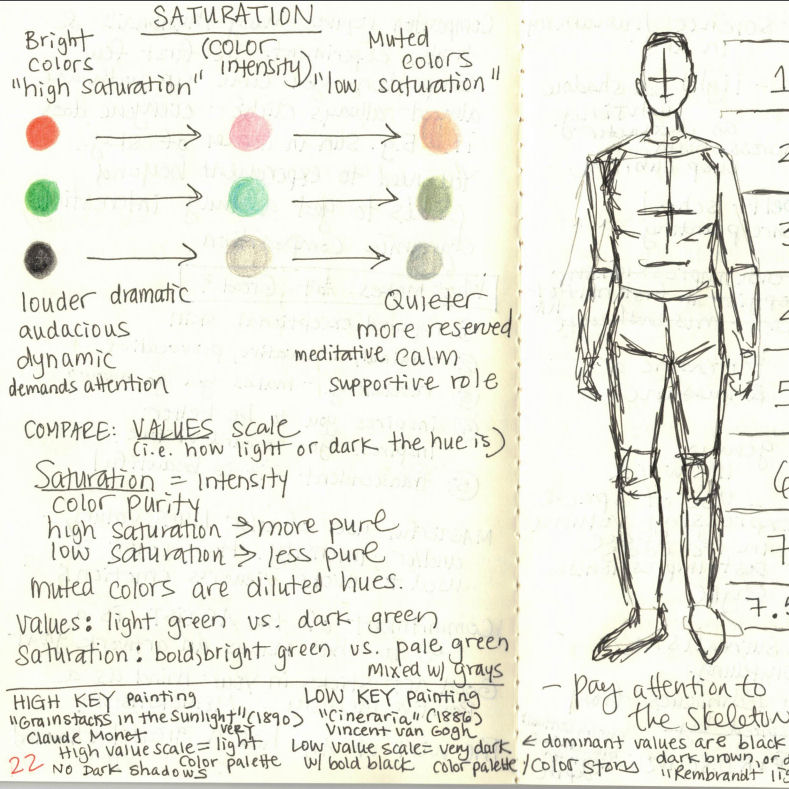 SATURATION
(COLOR intensity)
Bright colors
"high saturation"
Muted colors
"low saturation"
louder dramatic
audacious
dynamic
demands attention
Quieter
more reserved
meditative calm
supportive role
COMPARE: VALUES scale
(i.e. how light or dark the hue is)
Saturation = Intensity
color purity
high saturation → more pure
low saturation → less pure
muted colors are diluted hues.
Values: light green vs. dark green
Saturation: bold, bright green vs. pale green
mixed w/ grays
HIGH KEY painting
"Grainstacks in the Sunlight" (1890)
Claude Monet
High value scale = very light
No Dark shadows color palette
22
LOW KEY painting
"Cineraria" (1886)
Vincent van Gogh
Low value scale = very dark
w/ bold black color palette
1
2
3
5
6
7
7.5
- pay attention to
the skeleton
← dominant values are black
/color story dark brown, or
"Rembrandt